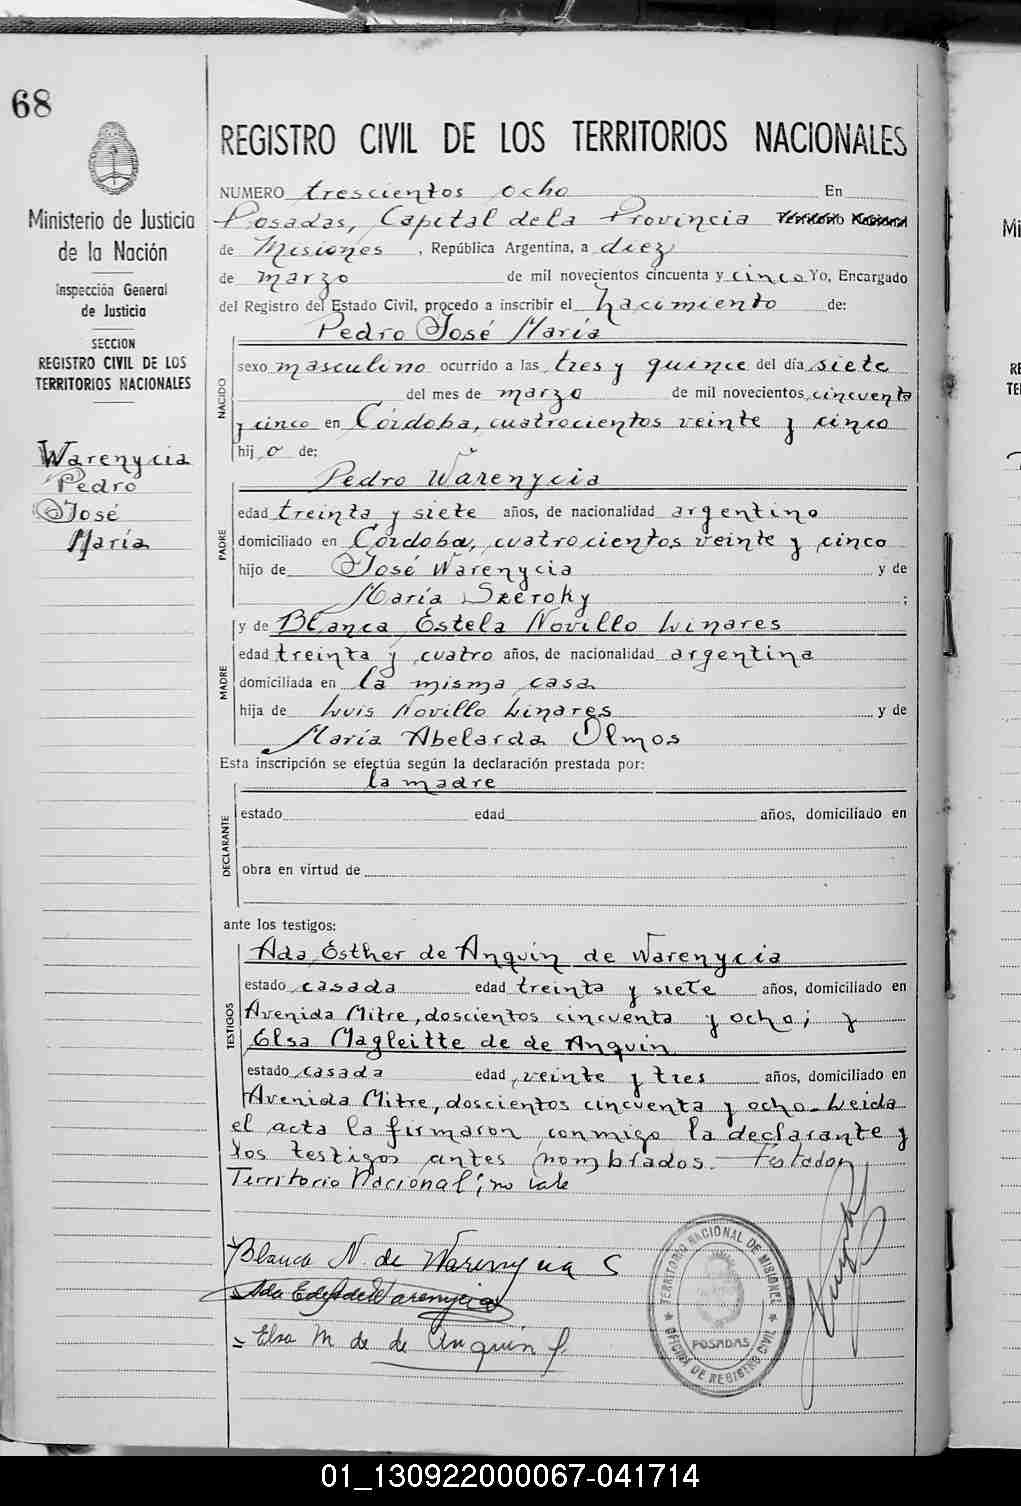 68
Ministerio de Justicia
de la Nación
Inspección General
de Justicia
SECCION
REGISTRO CIVIL DE LOS
TERRITORIOS NACIONALES
Warenycia
Pedro
José
María
REGISTRO CIVIL DE LOS TERRITORIOS NACIONALES
NUMERO trescientos ocho En
Posadas, Capital de la Provincia Territorio Nacional
de Misiones, República Argentina, a diez
de marzo de mil novecientos cincuenta y cinco Yo, Encargado
del Registro del Estado Civil, procedo a inscribir el nacimiento de:
Pedro José María
NACIDO
sexo masculino ocurrido a las tres y quince del día siete
del mes de marzo de mil novecientos cincuenta
y cinco en Córdoba, cuatrocientos veinte y cinco
hij o de:
Pedro Warenycia
PADRE
edad treinta y siete años, de nacionalidad argentino
domiciliado en Córdoba, cuatrocientos veinte y cinco
hijo de José Warenycia y de
María Szeroky;
y de Blanca Estela Novillo Linares
MADRE
edad treinta y cuatro años, de nacionalidad argentina
domiciliada en la misma casa
hija de Luis Novillo Linares y de
María Abelarda Olmos
Esta inscripción se efectúa según la declaración prestada por:
la madre
DECLARANTE
estado edad años, domiciliado en
obra en virtud de
ante los testigos:
Ada Esther de Anquin de Warenycia
TESTIGOS
estado casada edad treinta y siete años, domiciliado en
Avenida Mitre, doscientos cincuenta y ocho; y
Elsa Magleitte de de Anquin
estado casada edad veinte y tres años, domiciliado en
Avenida Mitre, doscientos cincuenta y ocho- Leida
el acta la firmaron conmigo la declarante y
los testigos antes nombrados. Testados
Territorio Nacional; no vale
Blanca N. de Warenycia
Ada E de A de Warenycia
Elsa M de de Anquin
TERRITORIO NACIONAL DE MISIONES
POSADAS
OFICINA DE REGISTRO CIVIL
Mi
RE
TE
01_130922000067-041714